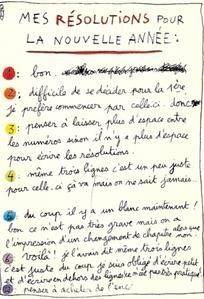 MES RÉSOLUTIONS POUR
LA NOUVELLE ANNÉE :
1 : bon...
2 : difficile de se décider pour la 1ère,
je préfère commencer par celle-ci. donc
3 : penser à laisser plus d'espace entre
les numéros sinon il n'y a plus d'espace
pour écrire les résolutions.
4 : même trois lignes c'est un peu juste
pour celle-là ça va mais on ne sait jamais...
5 : du coup il y a un blanc maintenant !
bon ce n'est pas très grave mais on a
l'impression d'un changement de chapitre non ?
6 : Voilà ! je l'avais dit même trois lignes
c'est juste du coup je suis obligé d'écrire petit
et d'écrire en dehors des lignes c'est pas très pratique
7 : penser à acheter de l'enc